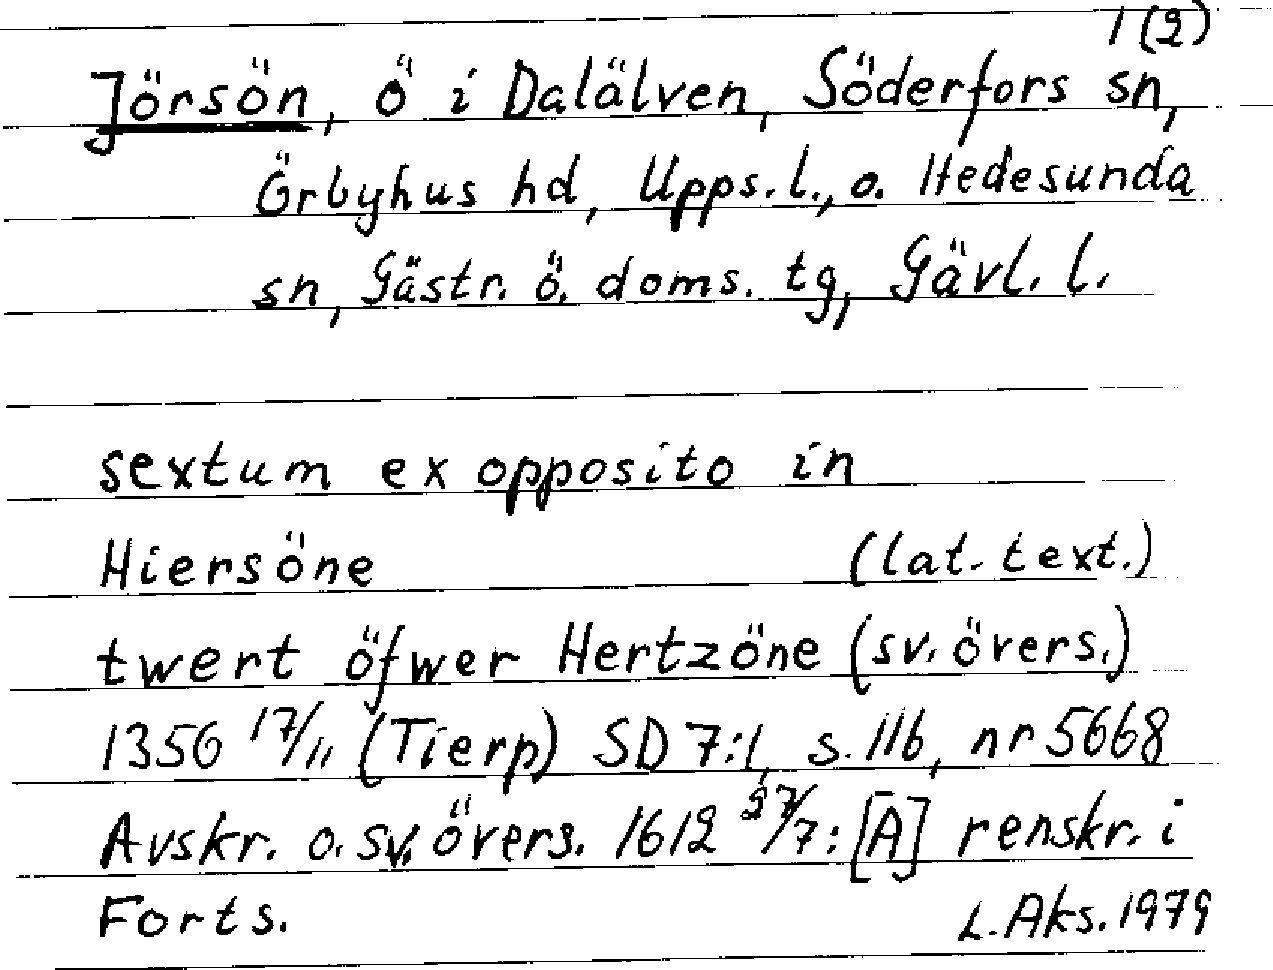 1 (2)
Jörsön, ö i Dalälven, Söderfors sn,
Örbyhus hd, Upps. l., o. Hedesunda
sn, Gästr. ö. doms. tg, Gävl. l.
sextum ex opposito in
Hiersöne (lat. text.)
twert öfwer Hertzöne (sv. övers.)
1356 17/11 (Tierp) SD 7:1, s. 116, nr 5668
Avskr. o. sv. övers. 1612 27/7: [A] renskr. i
Forts. L. Aks. 1979